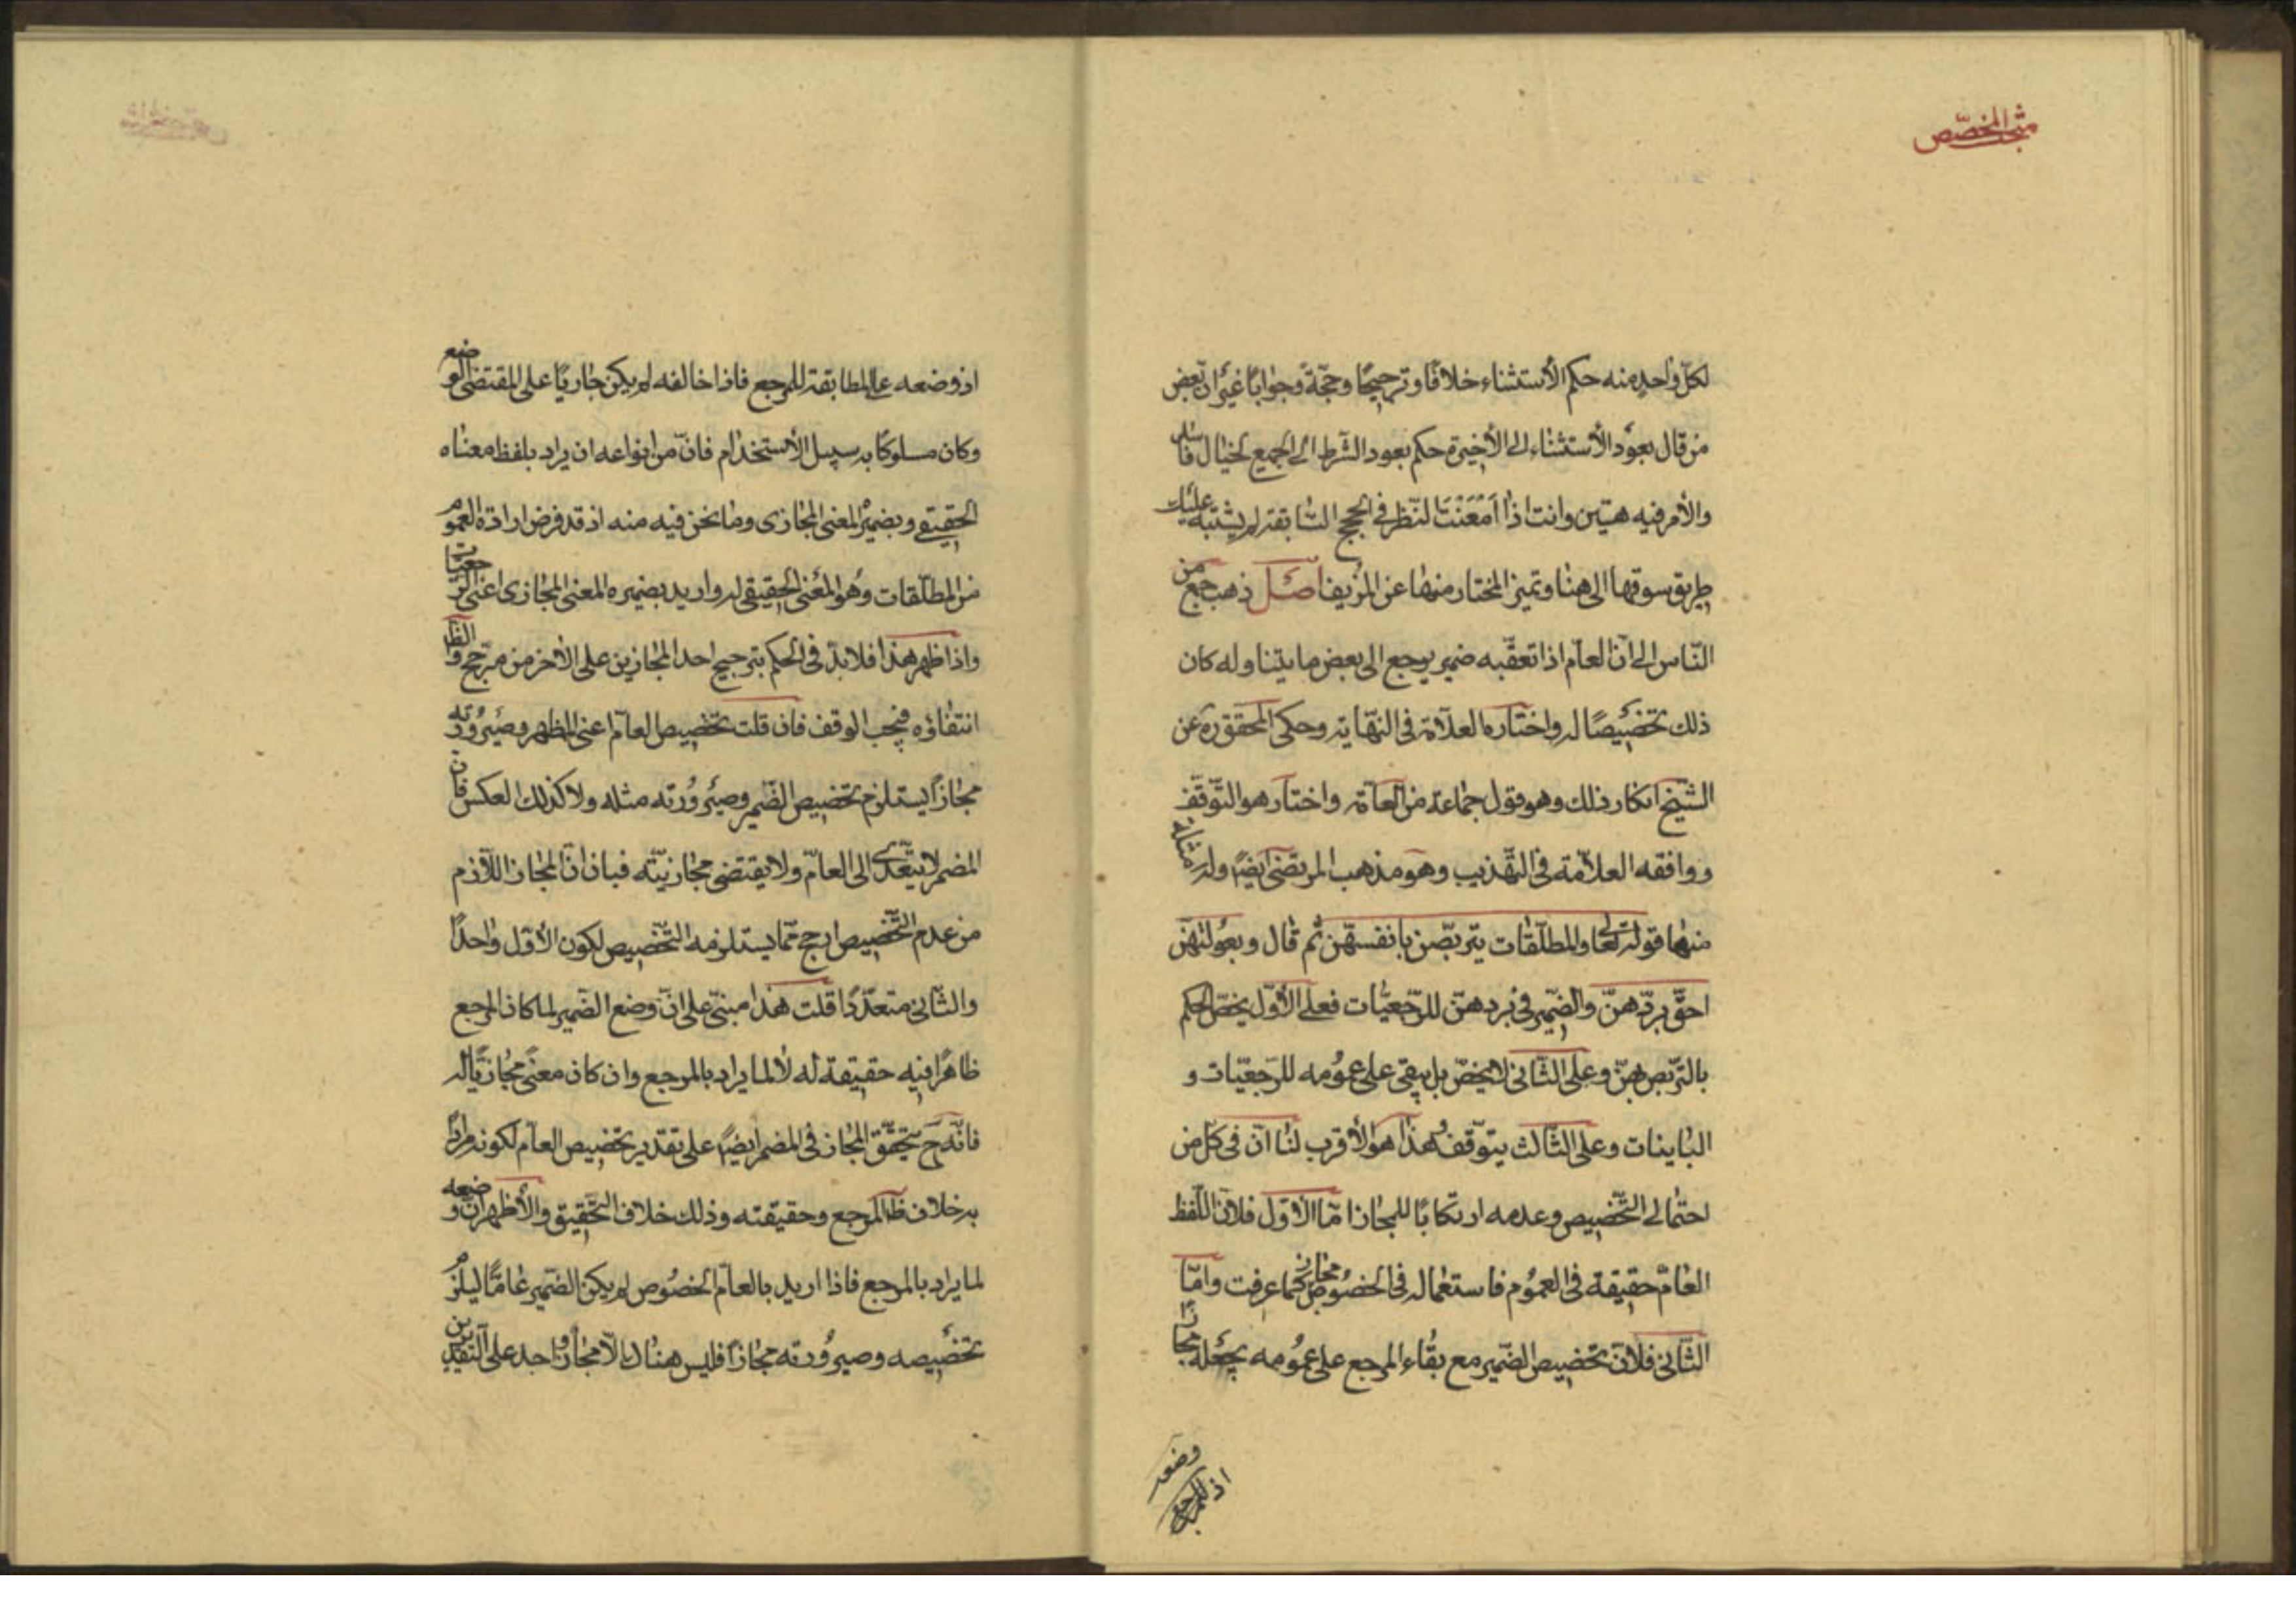 مبحث المخصّص
لكلّ واحد منه حكم الأستثناء خلافًا وترجيحًا وحجّة وجوابًا غير انّ بعض
من قال بعود الأستثناء الى الأخيرة حكم بعود الشّرط الى الجميع لخيال فاسد
والأمر فيه هيّن وانت اذا امعنت النّظر فى الحجج السّابقة لم يشتبه عليك
طريق سوقها الى هنا وتميز المختار منها عن المزيف اصل ذهب جمع من
النّاس الى انّ العامّ اذا تعقّبه ضمير يرجع الى بعض ما يتناوله كان
ذلك تخصيصًا له واختاره العلّامة فى النّهاية وحكى المحقق ره عن
الشّيخ انكار ذلك وهو قول جماعة من العامّة واختار هو التّوقّف
ووافقه العلّامة فى التّهذيب وهو مذهب المرتضى ايضًا وله امثلة
منها قوله تعالى والمطلّقات يتربّصن بانفسهنّ ثم قال وبعولتهنّ
احقّ بردّهنّ والضّمير فى بردهنّ للرّجعيّات فعلى الأوّل يخصّ الحكم
بالتّربص بهنّ وعلى الثّانى لا يخصّ بل يبقى على عمومه للرّجعيّات و
الباينات وعلى الثّالث يتوقّف وهذا هو الأقرب لنا انّ فى كل من
احتمالى التّخصيص وعدمه ارتكابًا للمجاز امّا الأوّل فلأنّ اللّفظ
العامّ حقيقة فى العموم فاستعماله فى الخصوص مجاز كما عرفت وامّا
الثّانى فلأنّ تخصيص الضّمير مع بقاء المرجع على عمومه يجعله مجازًا
اذ وضعه
للمرجع
اذ وضعه على المطابقة للمرجع فاذا خالفه لم يكن جاريًا على المقتضى الوضع
وكان مسلوكًا به سبيل الأستخدام فانّ من انواعه ان يراد بلفظ معناه
الحقيقى وبضميره المعنى المجازى وما نحن فيه منه اذ قد فرض ارادة العموم
من المطلّقات وهو المعنى الحقيقى له واريد بضميره المعنى المجازى اعنى الرّجعيّات
واذا ظهر هذا فلا بدّ فى الحكم بترجيح احد المجازين على الأخر من مرجّح والظّ
انتفاؤه فيجب الوقف فان قلت تخصيص العامّ اعنى المظهر وصيرورته
مجازًا يستلزم تخصيص الضّمير وصيرورته مثله ولا كذلك العكس فانّ
المضمر لا يتعدّى الى العامّ ولا يقتضى مجازيّته فبان انّ المجاز اللّازم
من عدم التّخصيص ارجح ممّا يستلزمه التّخصيص لكون الأوّل واحدًا
والثّانى متعدّدًا قلت هذا مبنىّ على انّ وضع الضّمير لما كان المرجع
ظاهرًا فيه حقيقة له لا لما يراد بالمرجع وان كان معنىً مجازيًّا له
فانّه ح يتحقّق المجاز فى المضمر ايضًا على تقدير تخصيص العامّ لكونه مرادًا
به خلاف ظ المرجع وحقيقته وذلك خلاف التّحقيق والأظهر انّ وضعه
لما يراد بالمرجع فاذا اريد بالعامّ الخصوص لم يكن الضّمير عامًّا ليلزم
تخصيصه وصيرورته مجازًا فليس هناك الّا مجاز واحد على التّقديرين